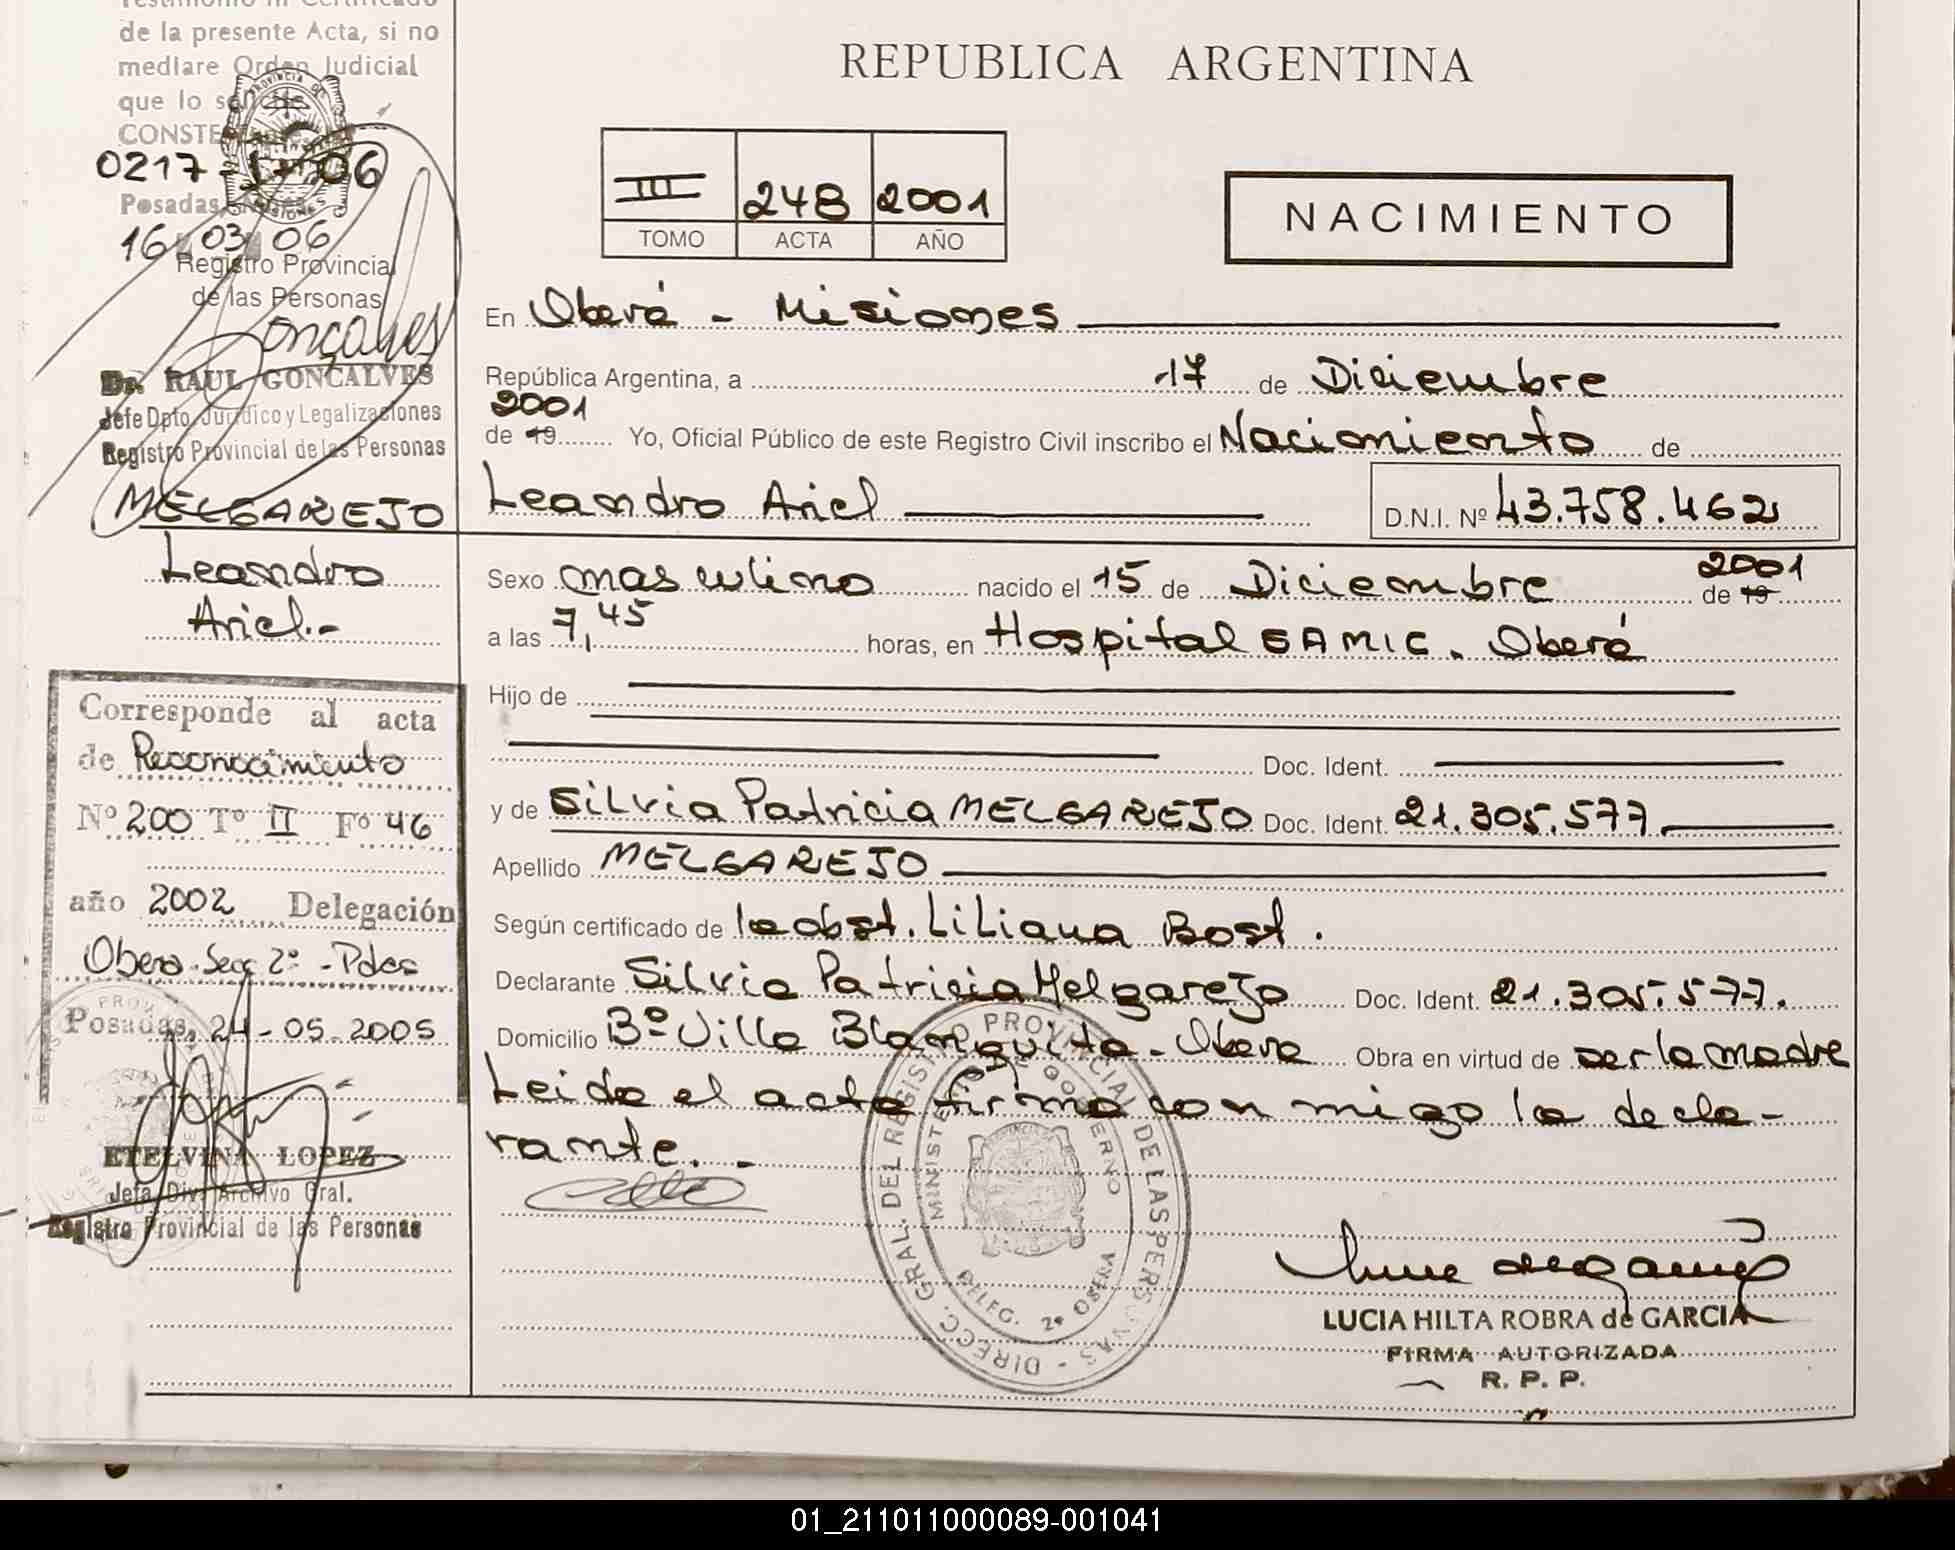 de la presente Acta, si no
mediare Orden Judicial
que lo
CONSTE
0217 - 17 - 06
Posadas,
16 03 06
Registro Provincial
de las Personas
Dr. RAUL GONÇALVES
Jefe Dpto. Jurídico y Legalizaciones
Registro Provincial de las Personas
MELGAREJO
Leandro
Ariel.-
Corresponde al acta
de Reconocimiento
Nº 200 Tº II Fº 46
año 2002 Delegación
Obera Secc 2º - Pdas
Posadas, 24-05-2005
ETELVINA LOPEZ
Jefa Div. Archivo Gral.
Registro Provincial de las Personas
REPUBLICA ARGENTINA
III 248 2001
TOMO ACTA AÑO
NACIMIENTO
En Oberá - Misiones
República Argentina, a 17 de Diciembre
2001
de 19 Yo, Oficial Público de este Registro Civil inscribo el Nacimiento de
Leandro Ariel D.N.I. Nº 43.758.462
Sexo masculino nacido el 15 de Diciembre de 19 2001
a las 7,45 horas, en Hospital SAMIC. Oberá
Hijo de
Doc. Ident.
y de Silvia Patricia MELGAREJO Doc. Ident. 21.305.577
Apellido MELGAREJO
Según certificado de la obst. Liliana Bost.
Declarante Silvia Patricia Melgarejo Doc. Ident. 21.305.577.
Domicilio Bº Villa Blanquita - Obera Obra en virtud de ser la madre
Leida el acta firma con migo la decla-
rante. -
DIRECC. GRAL. DEL REGISTRO PROVINCIAL DE LAS PERSONAS -
MINISTERIO DE GOBIERNO
DELEG. 2º OBERA
LUCIA HILTA ROBRA de GARCIA
FIRMA AUTORIZADA
R. P. P.
01_211011000089-001041